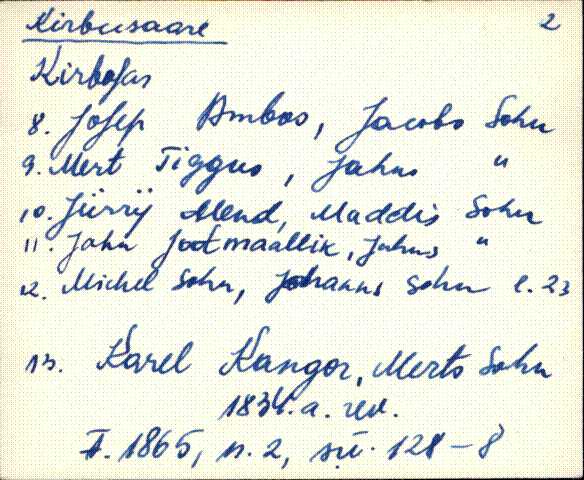 Kirbusaare 2
Kirbosas
8. Josep Ambos, Jacobs Sohn
9. Mert Tiggus, Jahns "
10. Jürrÿ Mend, Maddis Sohn
11. Jahn Jootmaallik, Jahns "
12. Michel Sohn, Johanns Sohn l. 23
13. Karel Kangor, Merts Sohn
1834. a. rev.
F. 1865, n. 2, sü. 128-8